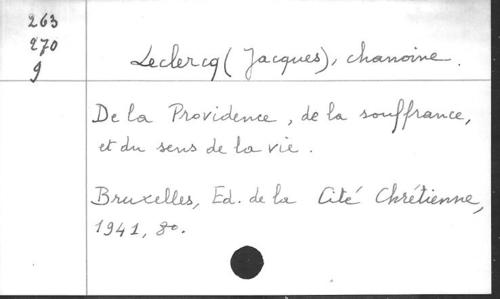 263
270
9
Leclercq (Jacques), chanoine.
De la Providence, de la souffrance,
et du sens de la vie.
Bruxelles, Ed. de la Cité Chrétienne,
1941, 8o.